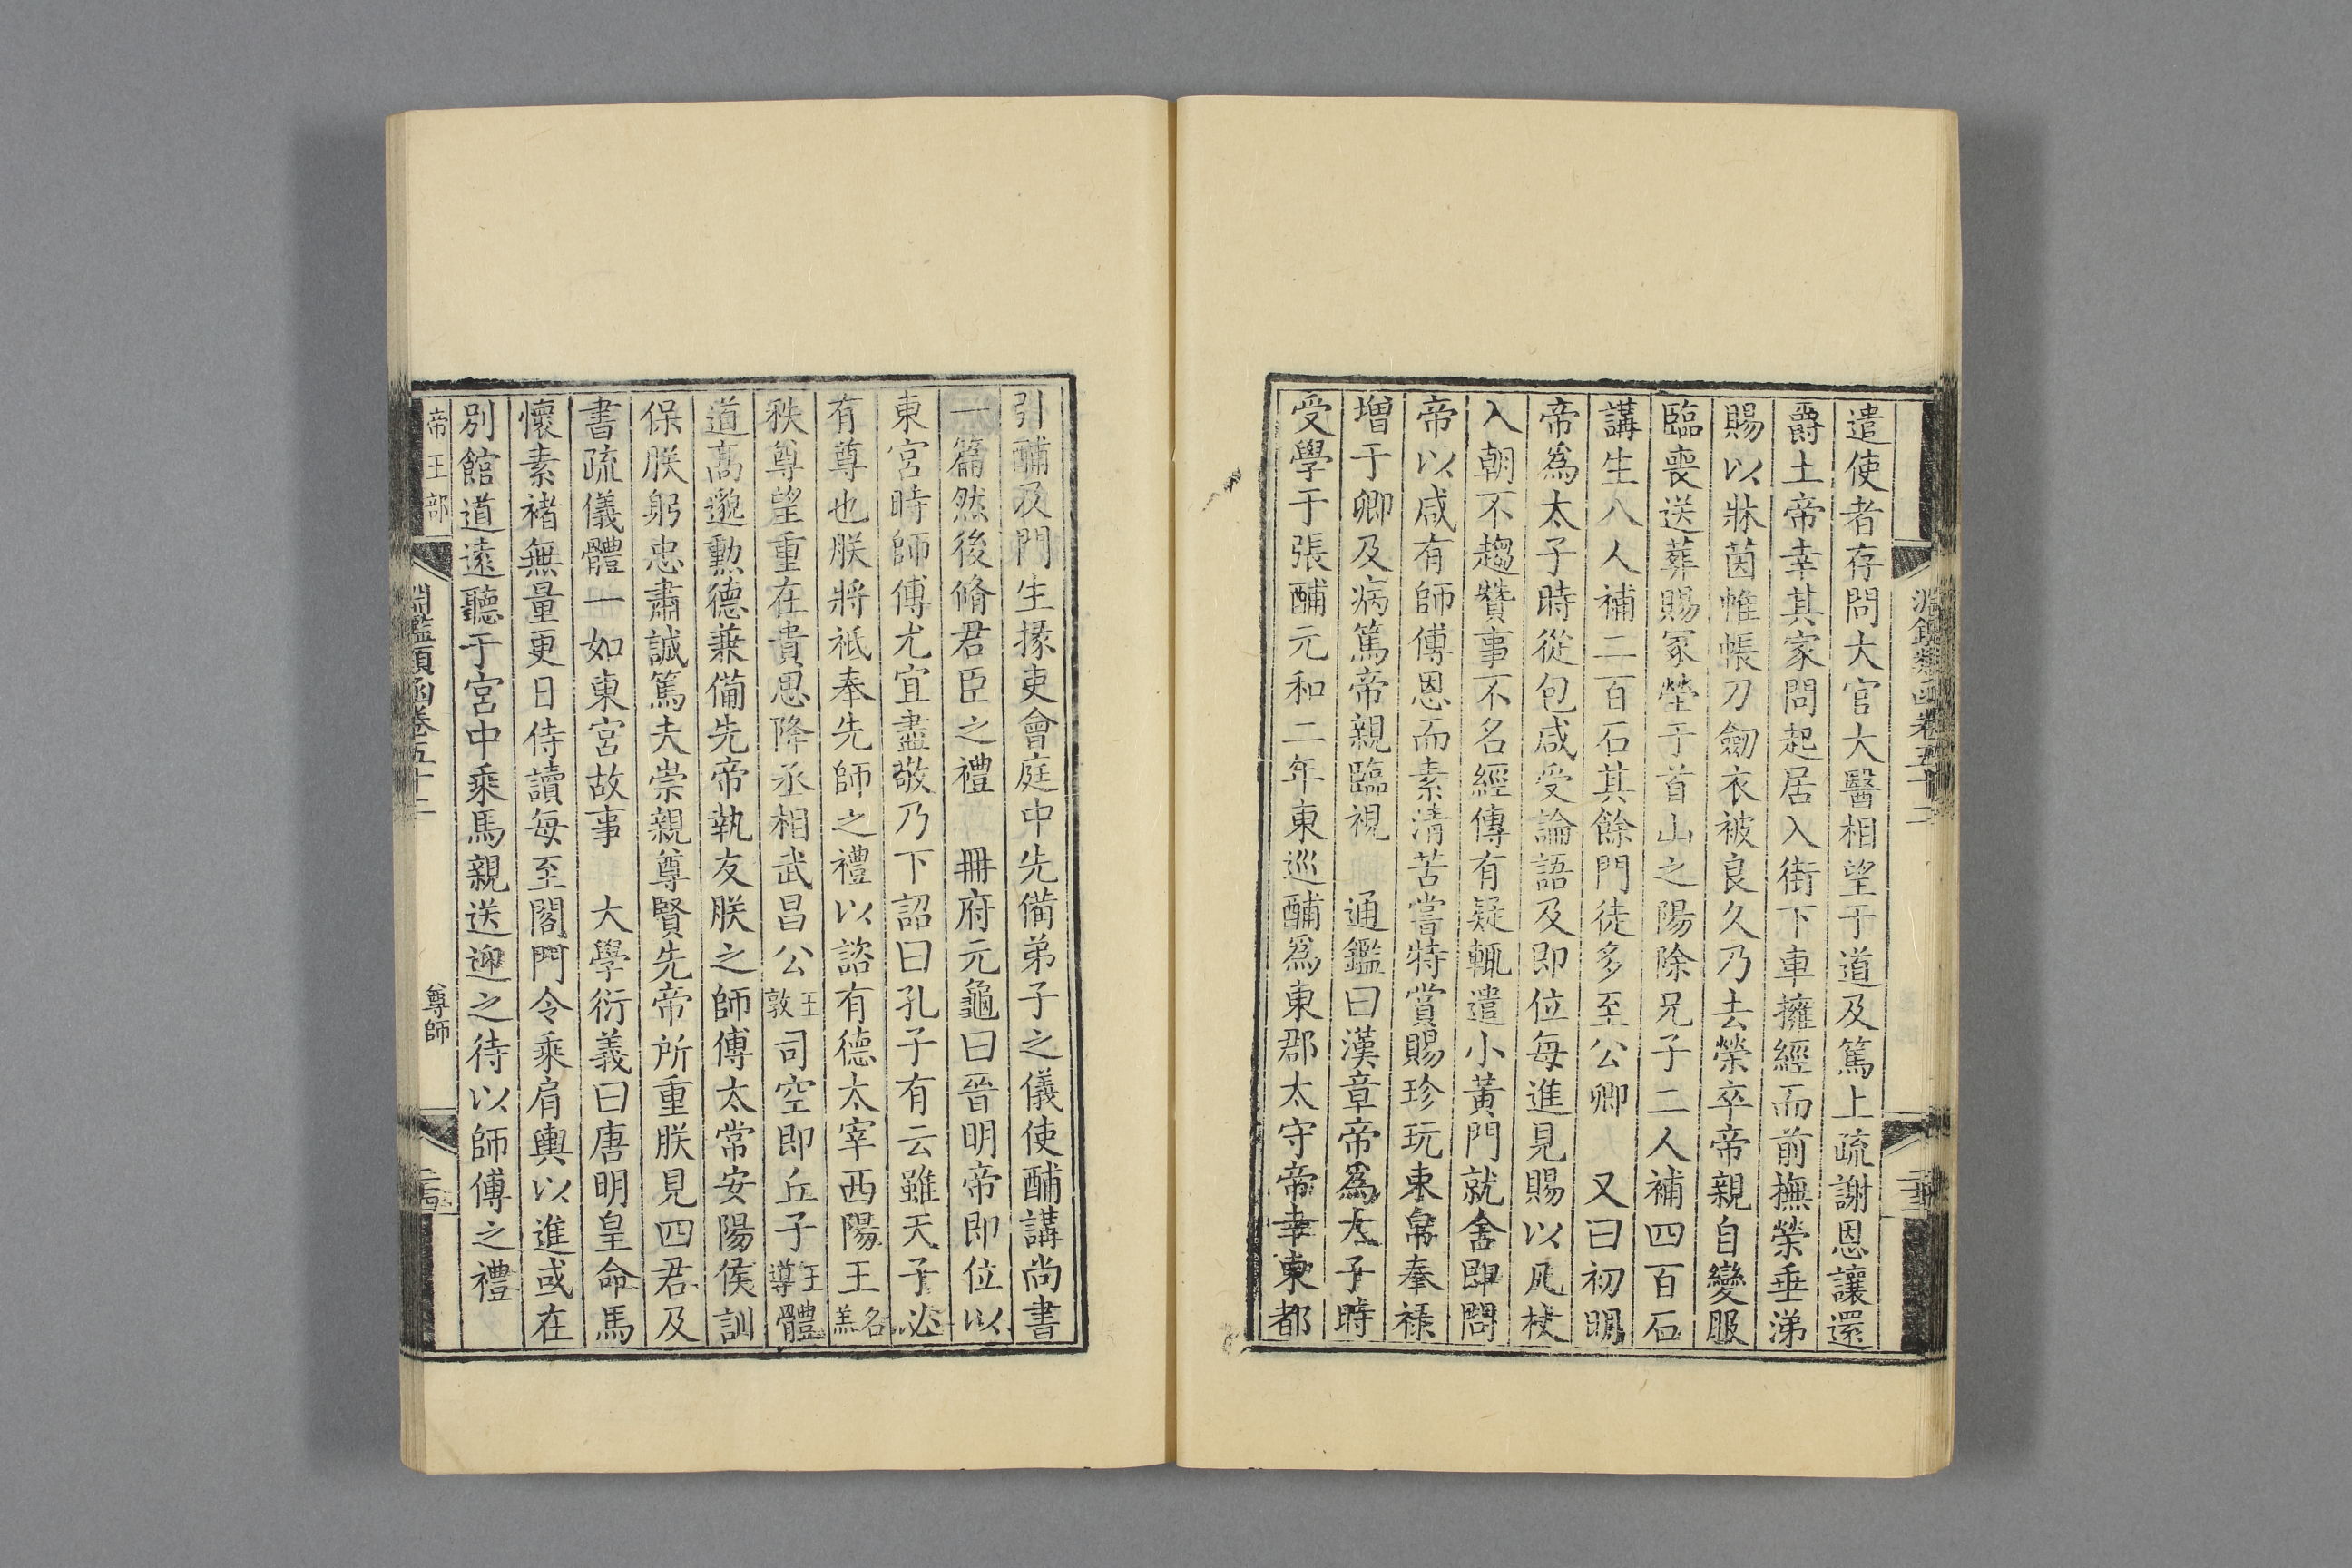 遣使者存問大官大醫相望于道及篤上疏謝恩讓還
爵土帝幸其家問起居入街下車擁經而前撫榮垂涕
賜以牀茵帷帳刀劒衣被良久乃去榮卒帝親自變服
臨喪送葬賜冢塋于首山之陽除兄子二人補四百石
講生八人補二百石其餘門徒多至公卿　又曰初明
帝爲太子時從包咸受論語及即位每進見賜以几杖
入朝不趨贊事不名經傳有疑輒遣小黃門就舍即問
帝以咸有師傅恩而素清苦嘗特賞賜珍玩束帛奉祿
增于卿及病篤帝親臨視　通鑑曰漢章帝爲太子時
受學于張酺元和二年東巡酺爲東郡太守帝幸東都
引酺及門生掾吏會庭中先備弟子之儀使酺講尚書
一篇然後脩君臣之禮　冊府元龜曰晉明帝即位以
東宮時師傅尤宜盡敬乃下詔曰孔子有云雖天子必
有尊也朕將祇奉先師之禮以諮有德太宰西陽王名羕
秩尊望重在貴思降丞相武昌公王敦司空即丘子王導體
道高邈勳德兼備先帝執友朕之師傅太常安陽侯訓
保朕躬忠肅誠篤夫崇親尊賢先帝所重朕見四君及
書疏儀體一如東宮故事　大學衍義曰唐明皇命馬
懷素褚無量更日侍讀每至閤門令乘肩輿以進或在
別館道遠聽于宮中乘馬親送迎之待以師傅之禮
帝王部　淵鑑類函卷五十二　尊師　二十四